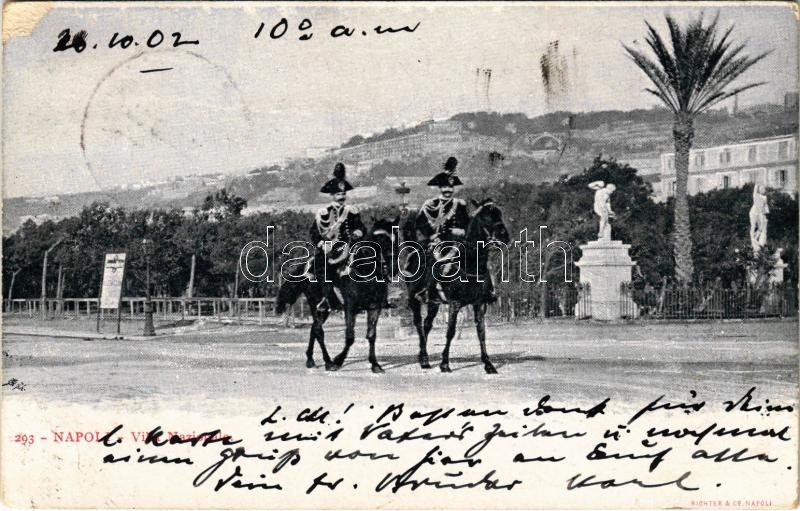 26.10.02 10º a.m
darabanth
293 - NAPOLI - Villa Nazionale
L. M! Besten Dank für Dein
l. Karte mit Vaters Zeilen u nochmal
einen Gruß von hier an Euch alle.
Dein tr. Bruder Karl.
RICHTER & Cº, NAPOLI